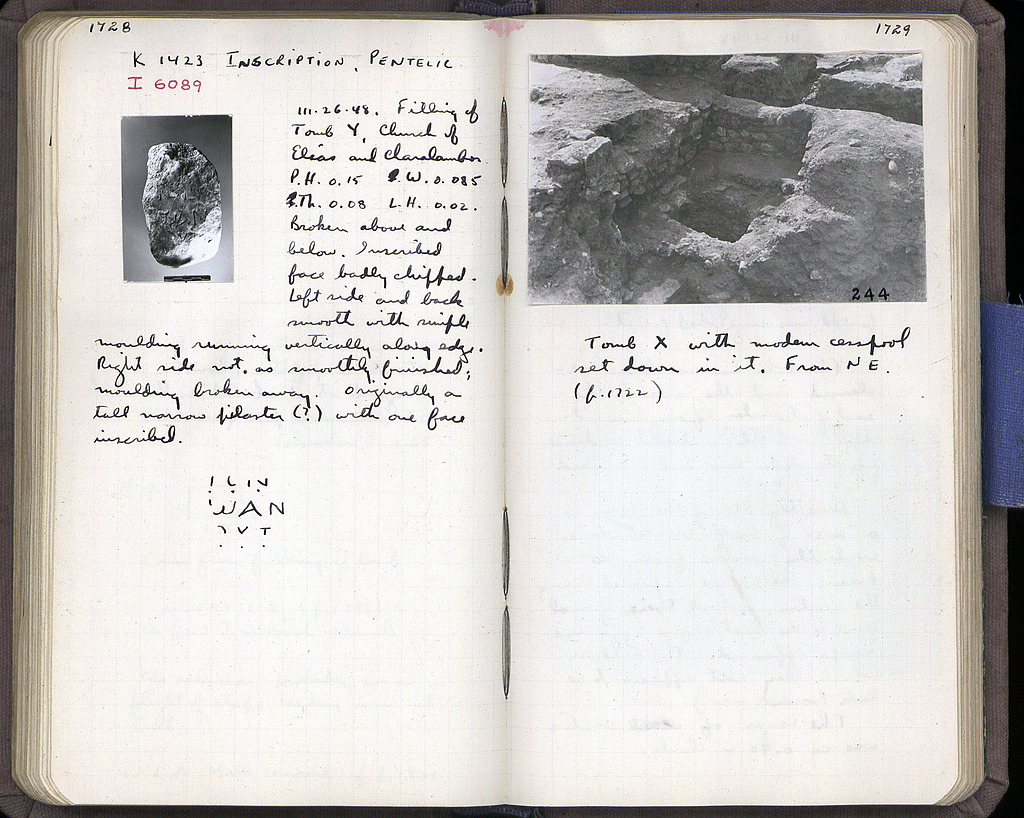 1728
K 1423 INSCRIPTION, PENTELIC
I 6089
III.26.48. Filling of
Tomb Y, Church of
Elias and Charalambos.
P.H. 0.15 P.W. 0.085
P.Th. 0.08 L.H. 0.02.
Broken above and
below. Inscribed
face badly chipped.
Left side and back
smooth with simple
moulding running vertically along edge.
Right side not as smoothly finished;
moulding broken away. Originally a
tall narrow pilaster (?) with one face
inscribed.
ΑΝ
Τ
1729
244
Tomb X with modern cesspool
set down in it. From NE.
(p. 1722)